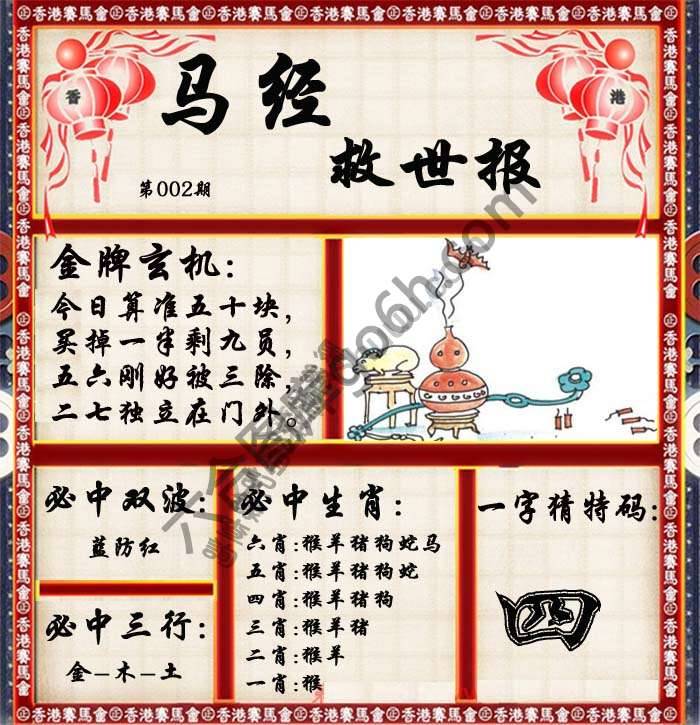 香港賽馬會
香
港
马经
救世报
第002期
金牌玄机:
今日算准五十块,
买掉一半剩九员,
五六刚好被三除,
二七独立在门外。
必中双波:
蓝防红
必中三行:
金-木-土
必中生肖:
六肖:猴羊猪狗蛇马
五肖:猴羊猪狗蛇
四肖:猴羊猪狗
三肖:猴羊猪
二肖:猴羊
一肖:猴
一字猜特码:
四